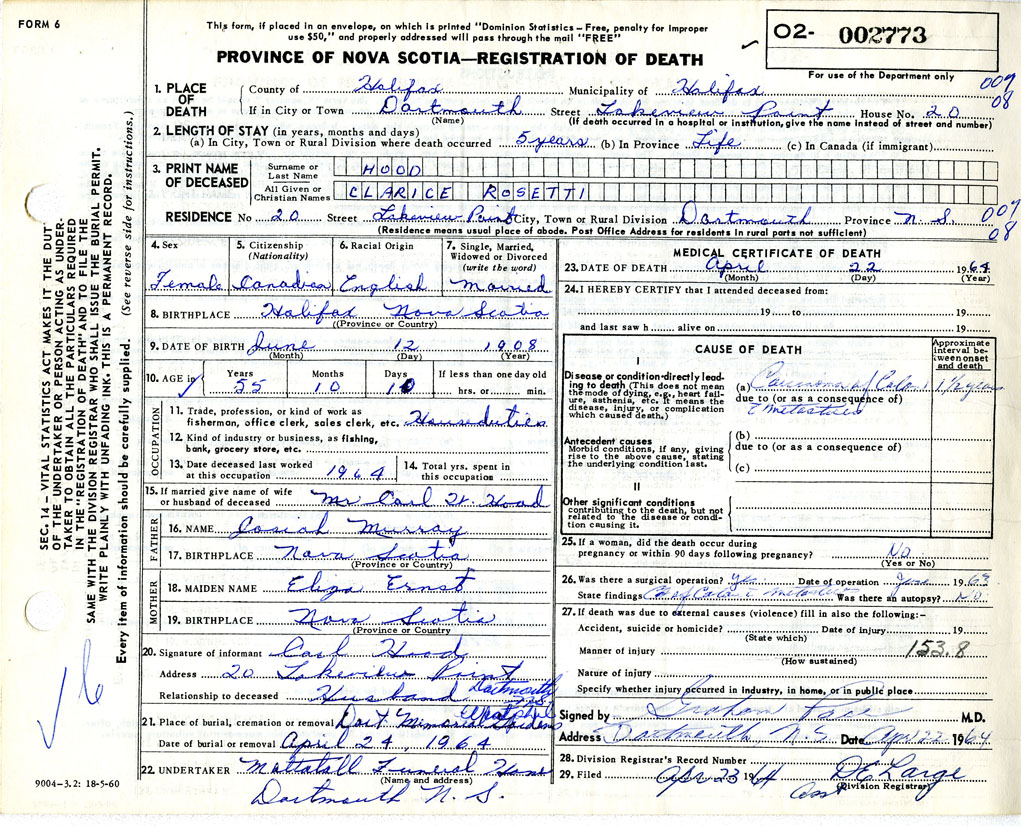 FORM 6
This form, if placed in an envelope, on which is printed "Dominion Statistics - Free, penalty for improper
use $50," and properly addressed will pass through the mail "FREE"
PROVINCE OF NOVA SCOTIA—REGISTRATION OF DEATH
O2- 002773
For use of the Department only
1. PLACE OF DEATH
County of Halifax Municipality of Halifax 009
If in City or Town Dartmouth Street Lakeview Point House No. 20 08
(Name) (If death occurred in a hospital or institution, give the name instead of street and number)
2. LENGTH OF STAY (in years, months and days)
(a) In City, Town or Rural Division where death occurred 5 years (b) In Province Life (c) In Canada (if immigrant)
3. PRINT NAME OF DECEASED
Surname or Last Name HOOD
All Given or Christian Names CLARICE ROSETTI
RESIDENCE No 20 Street Lakeview Point City, Town or Rural Division Dartmouth Province N. S. 009
(Residence means usual place of abode. Post Office Address for residents in rural parts not sufficient) 08
4. Sex
Female
5. Citizenship (Nationality)
Canadian
6. Racial Origin
English
7. Single, Married, Widowed or Divorced (write the word)
Married
8. BIRTHPLACE Halifax Nova Scotia
(Province or Country)
9. DATE OF BIRTH June 12 1908
(Month) (Day) (Year)
10. AGE in Years 55 Months 10 Days 10 If less than one day hrs. or min.
OCCUPATION
11. Trade, profession, or kind of work as
fisherman, office clerk, sales clerk, etc. House duties
12. Kind of industry or business, as fishing,
bank, grocery store, etc.
13. Date deceased last worked
at this occupation 1964
14. Total yrs. spent in
this occupation
15. If married give name of wife
or husband of deceased Mr Carl W. Hood
FATHER
16. NAME Josiah Murray
17. BIRTHPLACE Nova Scotia
(Province or Country)
MOTHER
18. MAIDEN NAME Eliza Ernst
19. BIRTHPLACE Nova Scotia
(Province or Country)
20. Signature of informant Carl Hood
Address 20 Lakeview Point
Dartmouth
N.S.
Relationship to deceased Husband
21. Place of burial, cremation or removal Dart. Memorial Gardens
Date of burial or removal April 24, 1964
22. UNDERTAKER Mattatall Funeral Home
(Name and address)
Dartmouth N. S.
9004-3.2: 18-5-60
MEDICAL CERTIFICATE OF DEATH
23. DATE OF DEATH April 22 1964
(Month) (Day) (Year)
24. I HEREBY CERTIFY that I attended deceased from:
19 to 19
and last saw h alive on 19
CAUSE OF DEATH
Approximate interval between onset and death
I
Disease or condition directly leading to death (This does not mean the mode of dying, e.g., heart failure, asthenia, etc. It means the disease, injury, or complication which caused death.)
(a) Carcinoma of Colon 1 1/2 years
due to (or as a consequence of)
c̄ metastases
Antecedent causes
Morbid conditions, if any, giving rise to the above cause, stating the underlying condition last.
(b)
due to (or as a consequence of)
(c)
II
Other significant conditions
contributing to the death, but not related to the disease or condition causing it.
25. If a woman, did the death occur during
pregnancy or within 90 days following pregnancy? No
(Yes or No)
26. Was there a surgical operation? Yes Date of operation June 1963
State findings Ca of Colon c̄ metastases Was there an autopsy? No.
27. If death was due to external causes (violence) fill in also the following:—
Accident, suicide or homicide? Date of injury 19
(State which)
Manner of injury 153.8
(How sustained)
Nature of injury
Specify whether injury occurred in industry, in home, or in public place
Signed by Graham M.D.
Address Dartmouth N.S. Date Apr 22 1964
28. Division Registrar's Record Number
29. Filed Apr 23 1964 D E Large
Asst (Division Registrar)
SEC. 14 – VITAL STATISTICS ACT MAKES IT THE DUTY
OF THE UNDERTAKER OR PERSON ACTING AS UNDER-
TAKER TO OBTAIN ALL THE PARTICULARS REQUIRED
IN THE "REGISTRATION OF DEATH" AND TO FILE THE
SAME WITH THE DIVISION REGISTRAR WHO SHALL ISSUE THE BURIAL PERMIT.
WRITE PLAINLY WITH UNFADING INK. THIS IS A PERMANENT RECORD.
Every item of information should be carefully supplied. (See reverse side for instructions.)